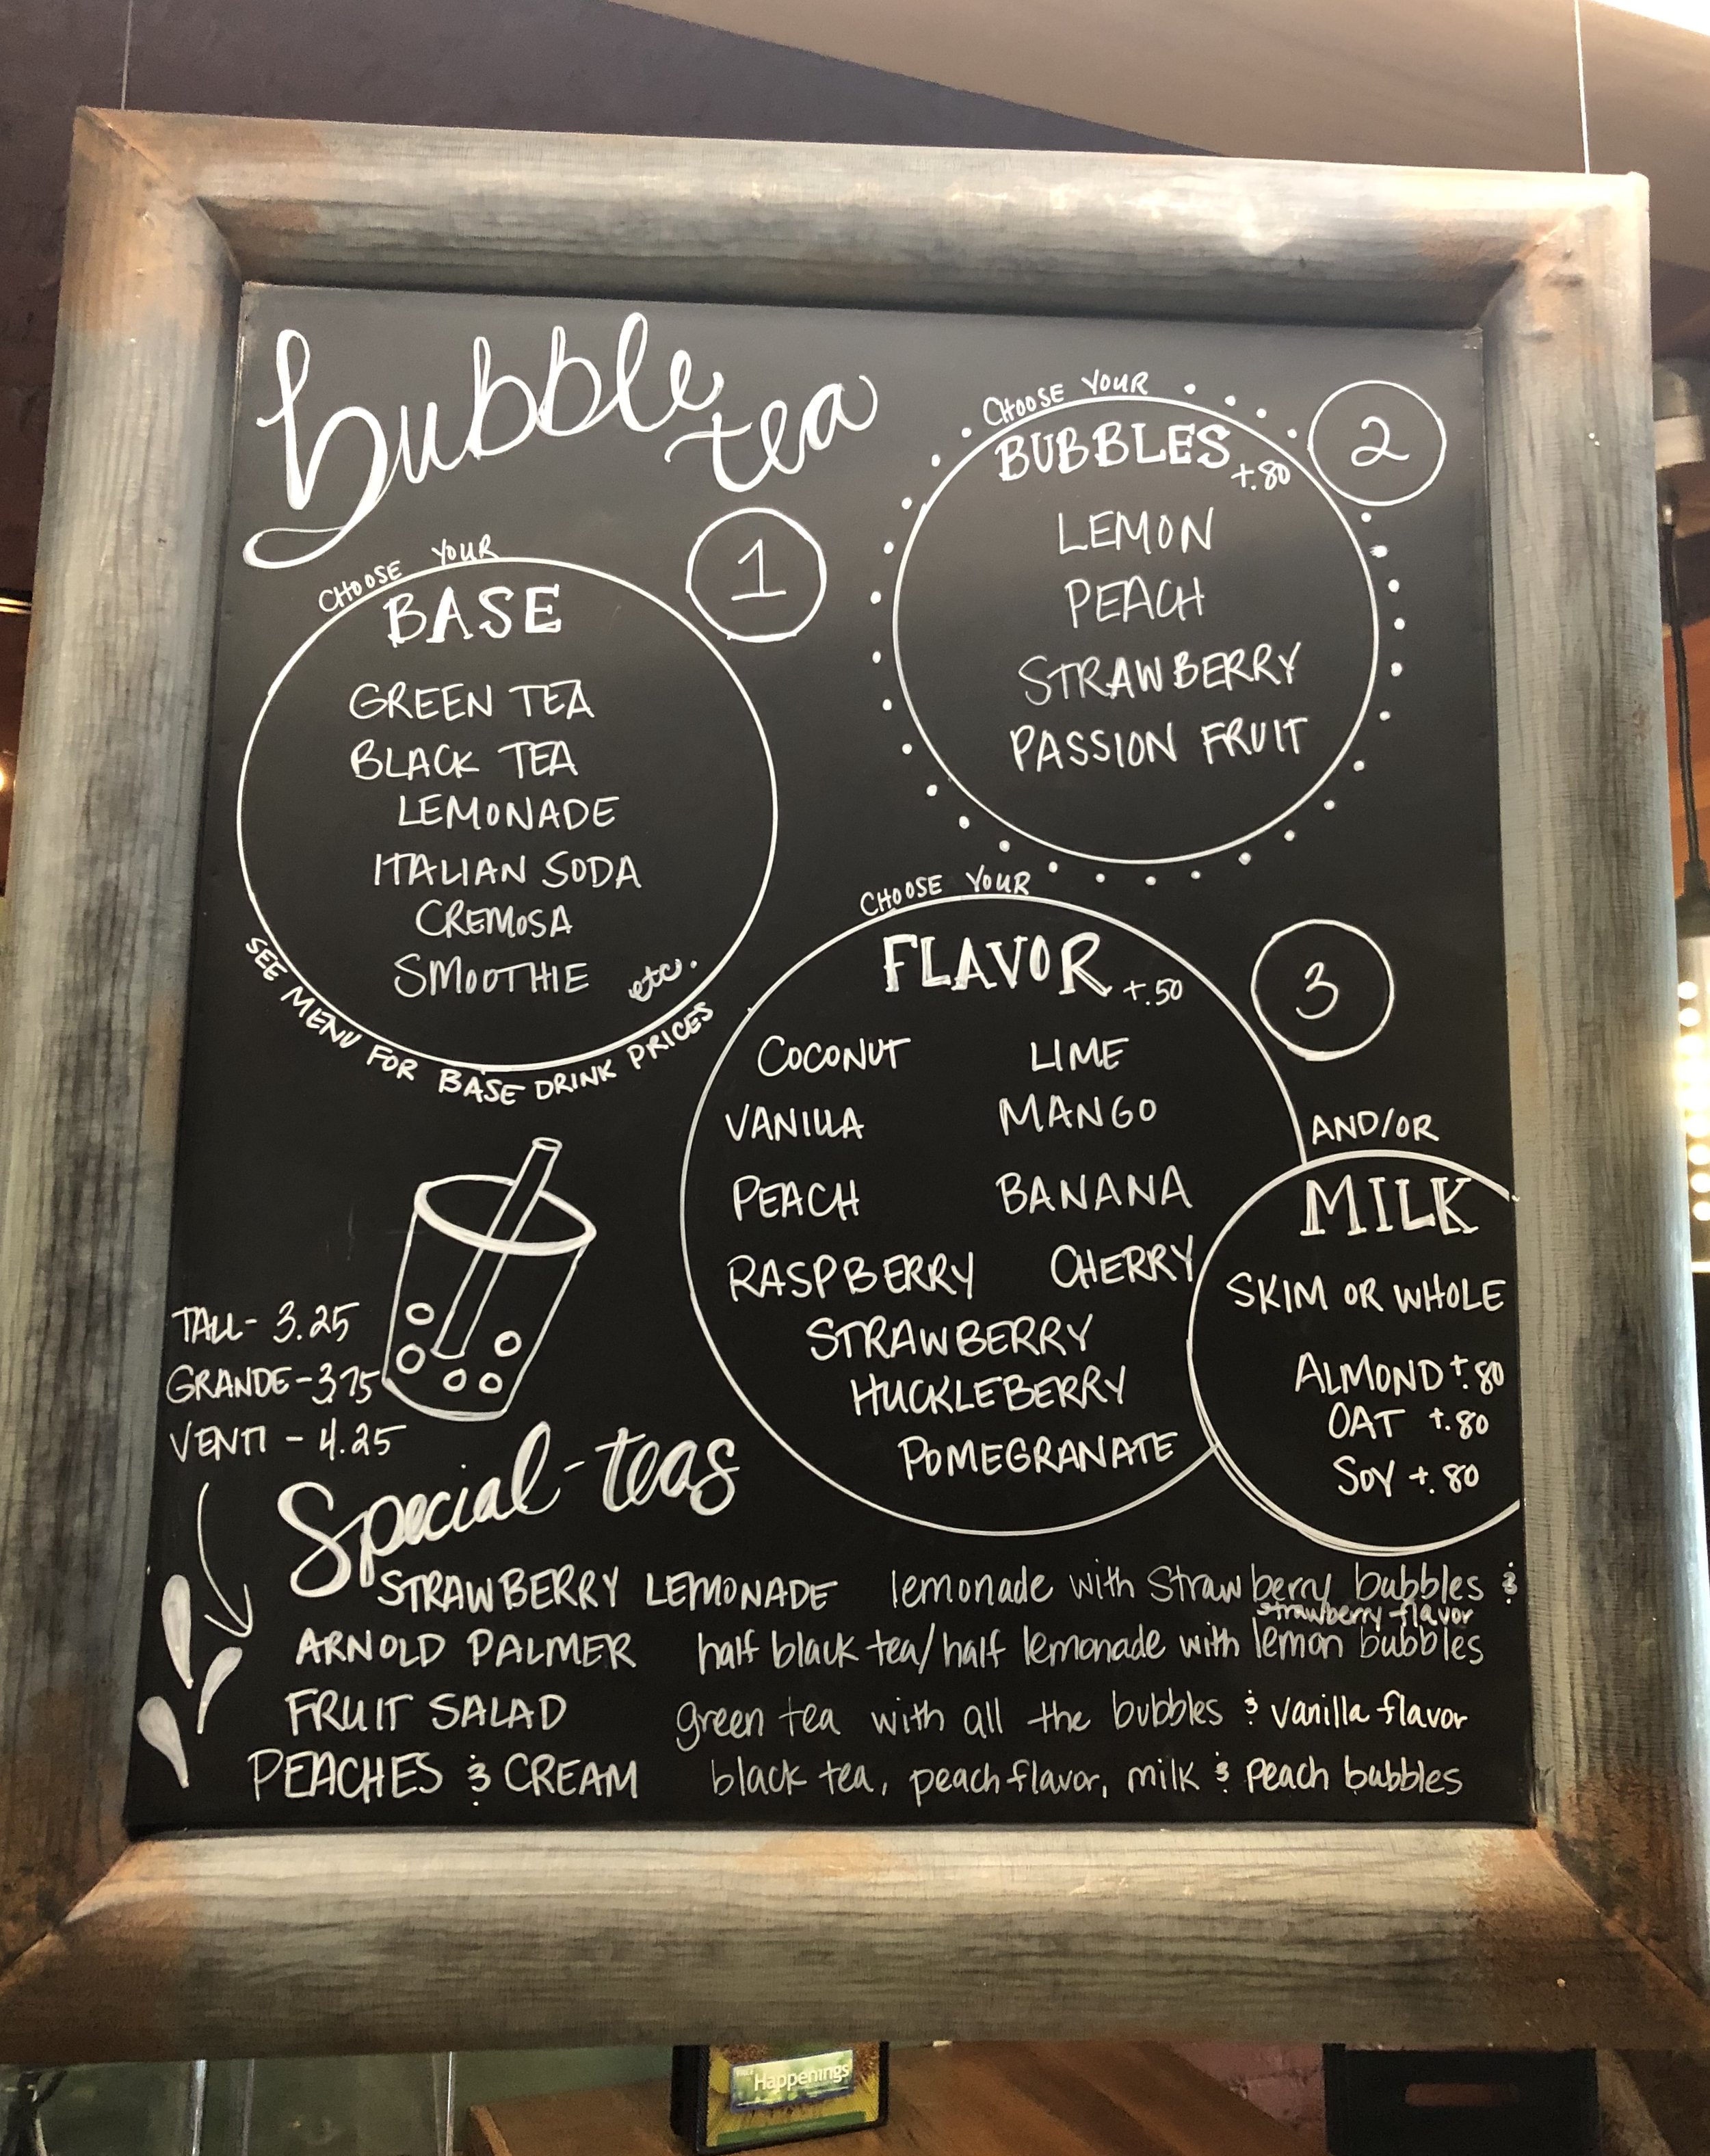 bubble tea
CHOOSE YOUR
BASE
1
GREEN TEA
BLACK TEA
LEMONADE
ITALIAN SODA
CREMOSA
SMOOTHIE etc.
SEE MENU FOR BASE DRINK PRICES
CHOOSE YOUR
BUBBLES +.80
2
LEMON
PEACH
STRAWBERRY
PASSION FRUIT
CHOOSE YOUR
FLAVOR +.50
3
COCONUT LIME
VANILLA MANGO
PEACH BANANA
RASPBERRY CHERRY
STRAWBERRY
HUCKLEBERRY
POMEGRANATE
AND/OR
MILK
SKIM OR WHOLE
ALMOND +.80
OAT +.80
SOY +.80
TALL- 3.25
GRANDE-3.75
VENTI - 4.25
Special-teas
STRAWBERRY LEMONADE lemonade with Strawberry bubbles &
strawberry flavor
ARNOLD PALMER half black tea/half lemonade with lemon bubbles
FRUIT SALAD green tea with all the bubbles & vanilla flavor
PEACHES & CREAM black tea, peach flavor, milk & peach bubbles
Happenings